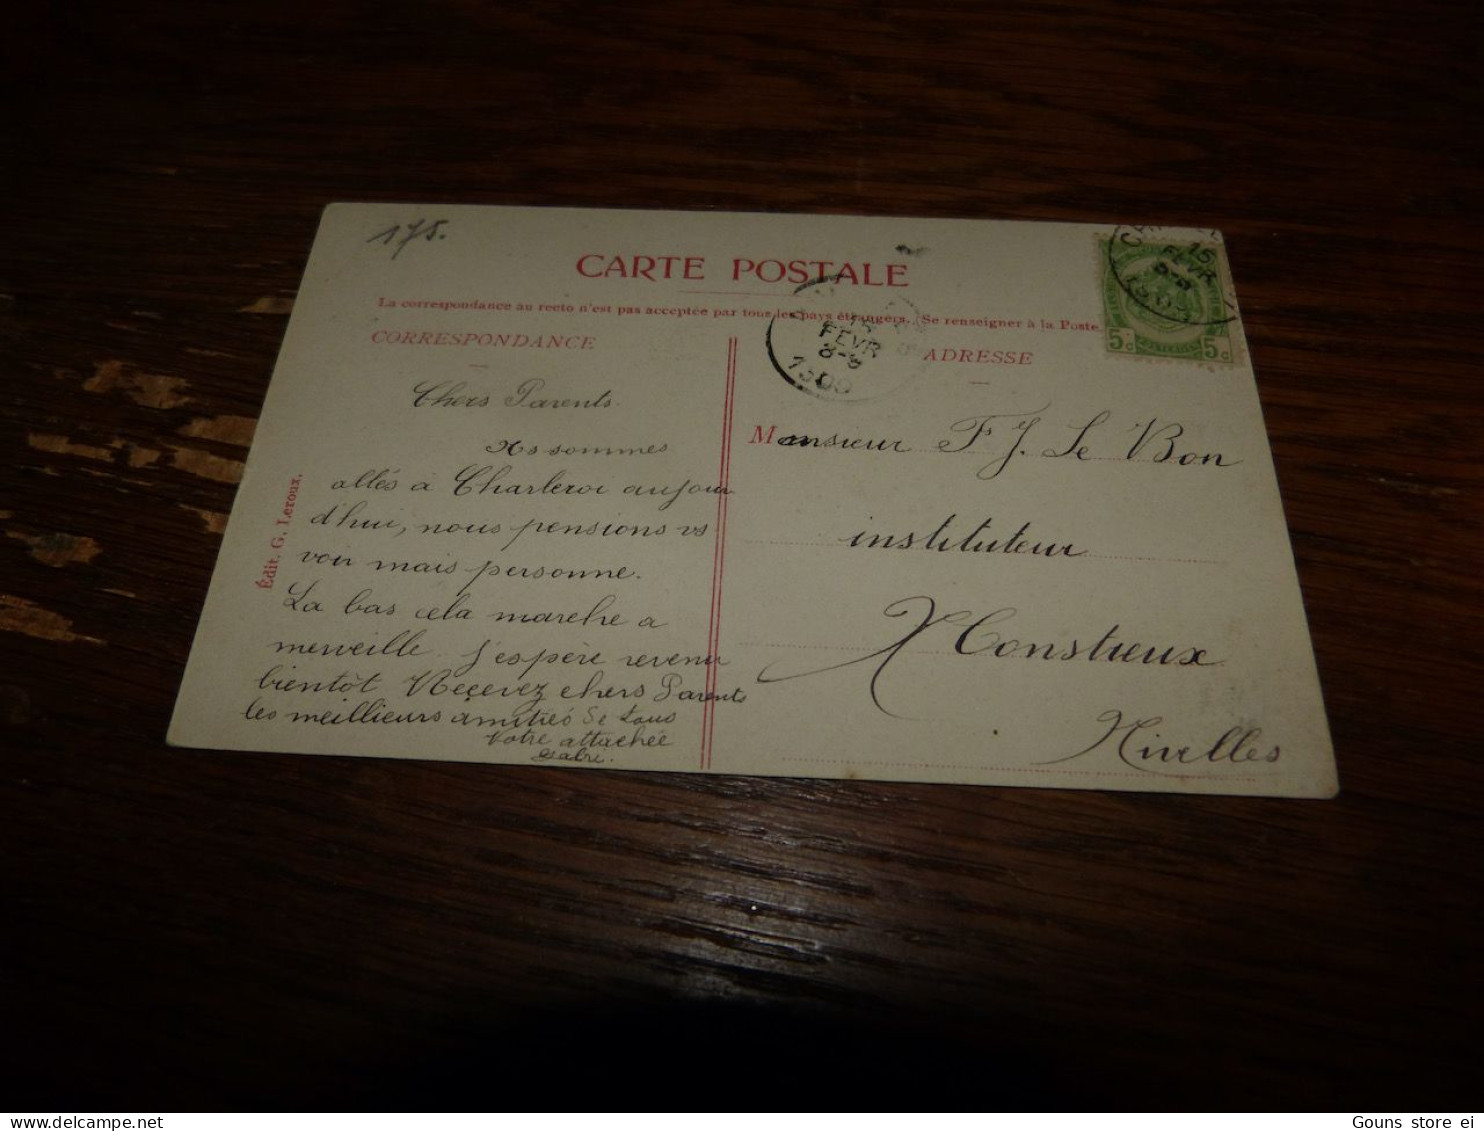 175.
CARTE POSTALE
La correspondance au recto n'est pas acceptée par tous les pays étrangers. Se renseigner à la Poste.
CORRESPONDANCE
Chers Parents
Ns sommes
allés à Charleroi aujour
d'hui, nous pensions vs
voir mais personne.
La bas cela marche a
merveille. J'espère revenir
bientôt Reçevez chers Parents
les meillieurs amitiés de tous
Votre attachée
Gabri.
Édit. G. Leroux.
15
FEVR
8-9
1909
ADRESSE
Monsieur F J. Le Bon
instituteur
Monstreux
Nivelles
15
FEVR
1909
5c 5c
delcampe.net
Gouns store ei